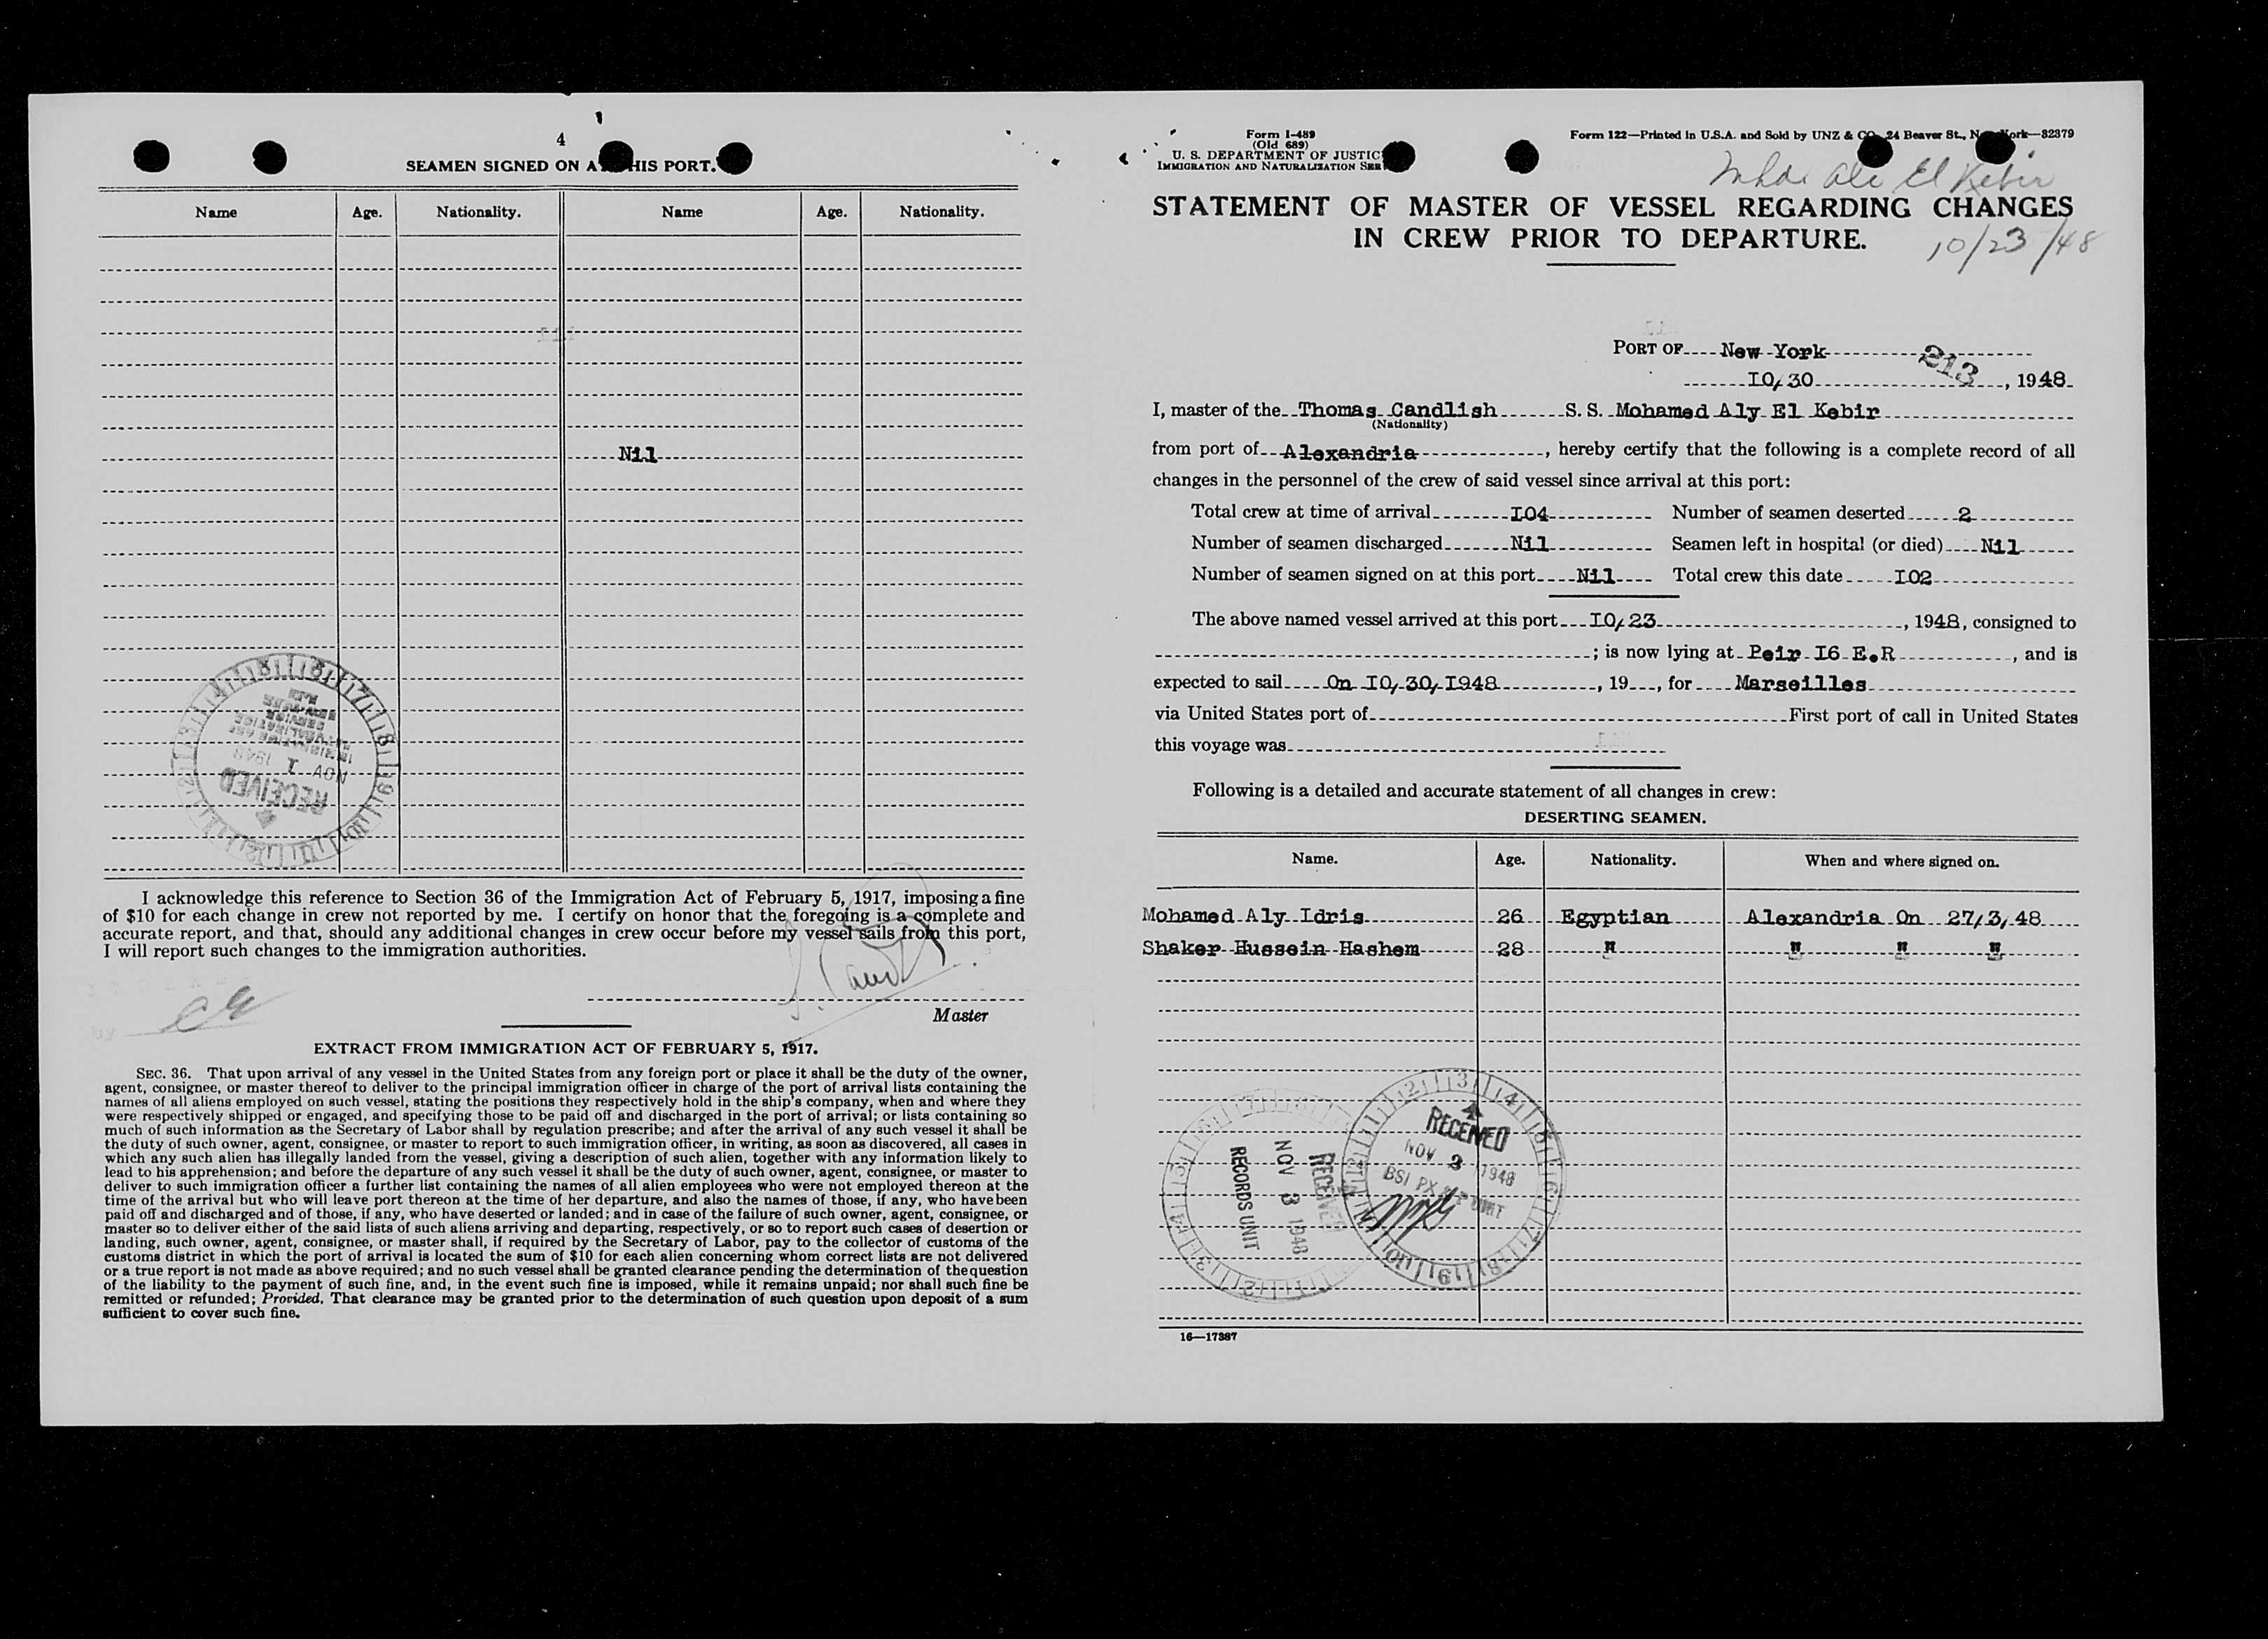 4
SEAMEN SIGNED ON A HIS PORT.
Name Age. Nationality. Name Age. Nationality.
Nil
RECEIVED
NOV 1 1948
I acknowledge this reference to Section 36 of the Immigration Act of February 5, 1917, imposing a fine
of $10 for each change in crew not reported by me. I certify on honor that the foregoing is a complete and
accurate report, and that, should any additional changes in crew occur before my vessel sails from this port,
I will report such changes to the immigration authorities.
by
Master
EXTRACT FROM IMMIGRATION ACT OF FEBRUARY 5, 1917.
SEC. 36. That upon arrival of any vessel in the United States from any foreign port or place it shall be the duty of the owner,
agent, consignee, or master thereof to deliver to the principal immigration officer in charge of the port of arrival lists containing the
names of all aliens employed on such vessel, stating the positions they respectively hold in the ship's company, when and where they
were respectively shipped or engaged, and specifying those to be paid off and discharged in the port of arrival; or lists containing so
much of such information as the Secretary of Labor shall by regulation prescribe; and after the arrival of any such vessel it shall be
the duty of such owner, agent, consignee, or master to report to such immigration officer, in writing, as soon as discovered, all cases in
which any such alien has illegally landed from the vessel, giving a description of such alien, together with any information likely to
lead to his apprehension; and before the departure of any such vessel it shall be the duty of such owner, agent, consignee, or master to
deliver to such immigration officer a further list containing the names of all alien employees who were not employed thereon at the
time of the arrival but who will leave port thereon at the time of her departure, and also the names of those, if any, who have been
paid off and discharged and of those, if any, who have deserted or landed; and in case of the failure of such owner, agent, consignee, or
master so to deliver either of the said lists of such aliens arriving and departing, respectively, or so to report such cases of desertion or
landing, such owner, agent, consignee, or master shall, if required by the Secretary of Labor, pay to the collector of customs of the
customs district in which the port of arrival is located the sum of $10 for each alien concerning whom correct lists are not delivered
or a true report is not made as above required; and no such vessel shall be granted clearance pending the determination of the question
of the liability to the payment of such fine, and, in the event such fine is imposed, while it remains unpaid; nor shall such fine be
remitted or refunded; Provided, That clearance may be granted prior to the determination of such question upon deposit of a sum
sufficient to cover such fine.
Form I-489
(Old 689)
U. S. DEPARTMENT OF JUSTIC
IMMIGRATION AND NATURALIZATION SER
Form 122—Printed in U.S.A. and Sold by UNZ & CO., 24 Beaver St., N ork—32379
Mhd. Ali El Kebir
STATEMENT OF MASTER OF VESSEL REGARDING CHANGES
IN CREW PRIOR TO DEPARTURE.
10/23/48
PORT OF New York
213
10/30, 1948
I, master of the Thomas Candlish S. S. Mohamed Aly El Kebir
(Nationality)
from port of Alexandria, hereby certify that the following is a complete record of all
changes in the personnel of the crew of said vessel since arrival at this port:
Total crew at time of arrival I04 Number of seamen deserted 2
Number of seamen discharged Nil Seamen left in hospital (or died) Nil
Number of seamen signed on at this port Nil Total crew this date I02
The above named vessel arrived at this port I0/23, 1948, consigned to
; is now lying at Peir I6 E.R, and is
expected to sail On I0/30/I948, 19 , for Marseilles
via United States port of First port of call in United States
this voyage was
Following is a detailed and accurate statement of all changes in crew:
DESERTING SEAMEN.
Name. Age. Nationality. When and where signed on.
Mohamed Aly Idris 26 Egyptian Alexandria On 27/3/48
Shaker Hussein Hashem 28 " " " "
RECEIVED
NOV 3 1948
RECORDS UNIT
RECEIVED
NOV 3 1948
BSI PX UNIT
16—17387